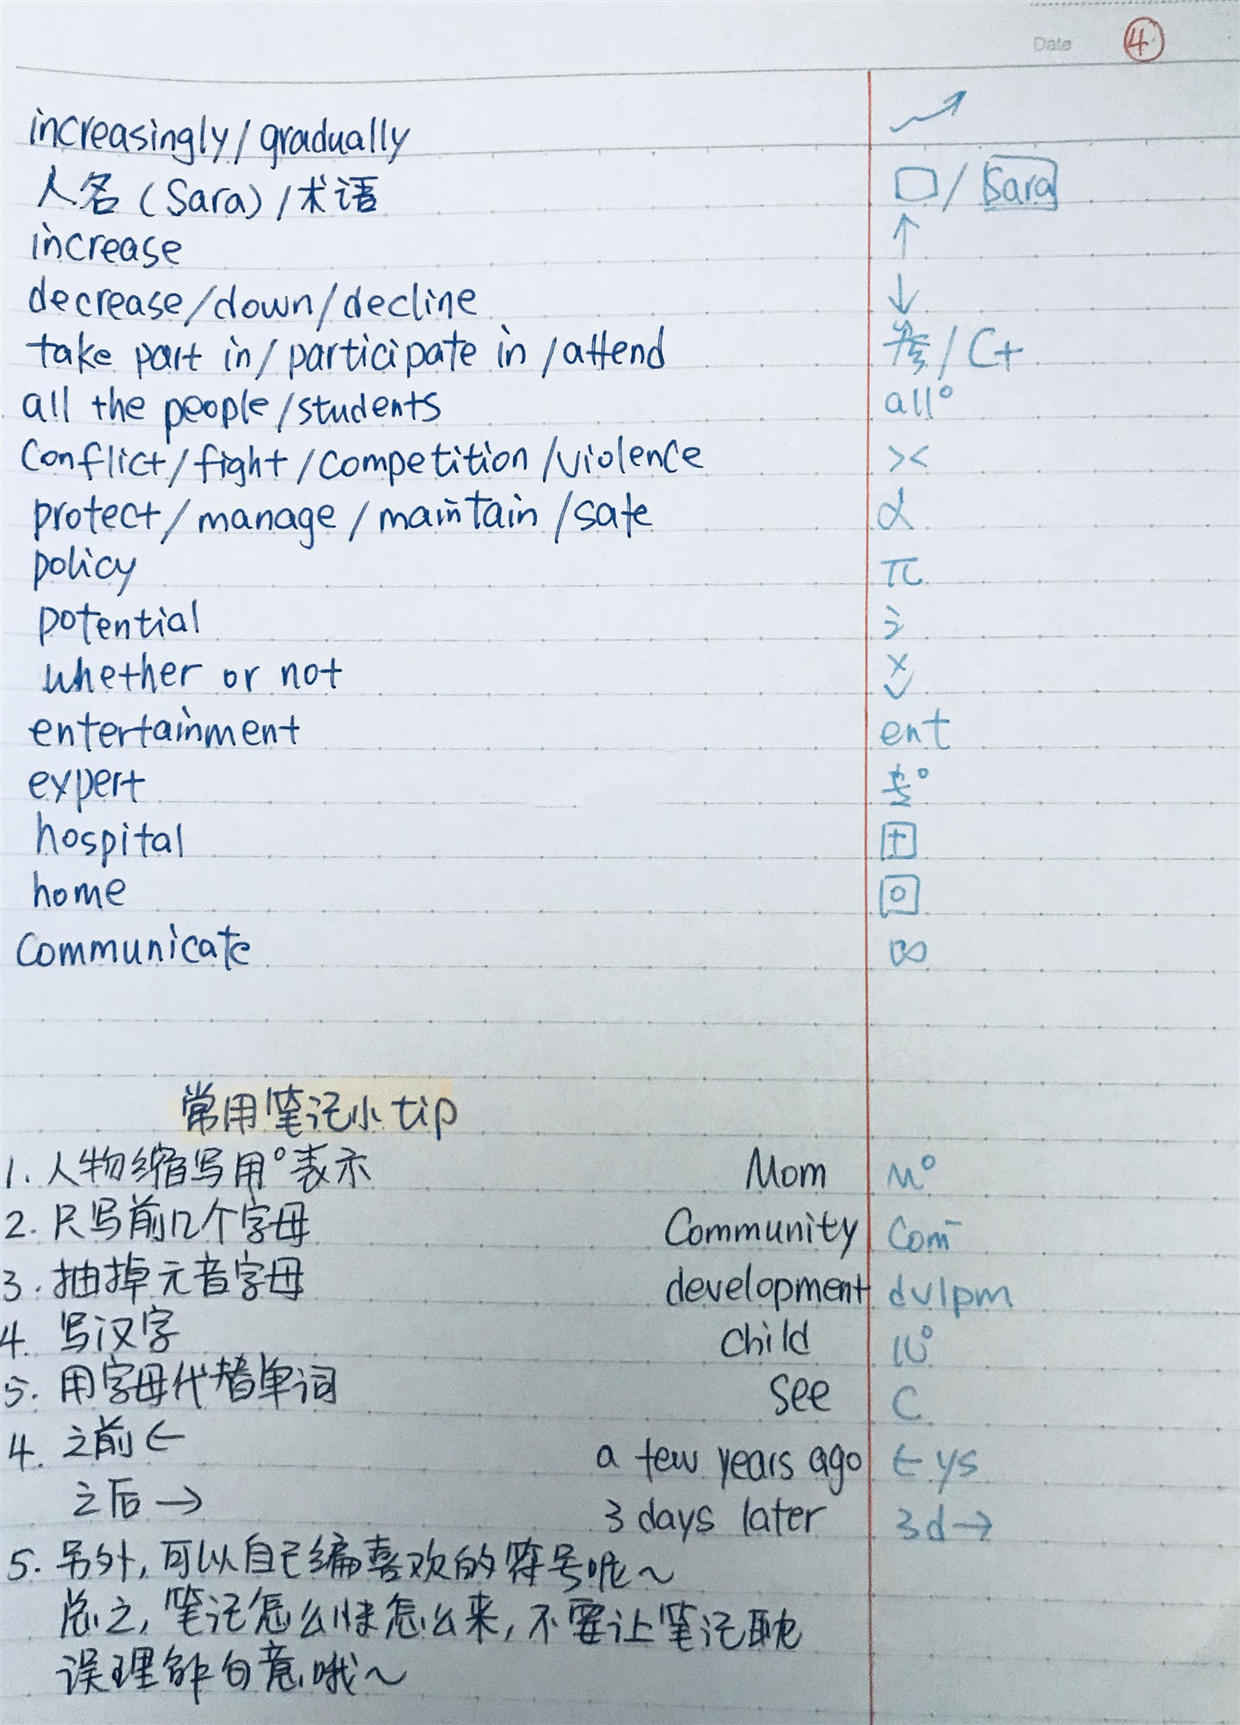 Date ④
increasingly/gradually ↗
人名(Sara)/术语 □/Sara
increase ↑
decrease/down/decline ↓
take part in/participate in/attend 参/C+
all the people/students all°
Conflict/fight/competition/violence ><
protect/manage/maintain/safe α
policy π
potential
whether or not ×✓
entertainment ent
expert 专°
hospital
home 回
Communicate ∞
常用笔记小tip
1. 人物缩写用°表示 Mom M°
2. 只写前几个字母 Community Com
3. 抽掉元音字母 development dvlpm
4. 写汉字 Child 儿°
5. 用字母代替单词 see C
4. 之前← a few years ago ← ys
之后→ 3 days later 3d→
5. 另外,可以自己编喜欢的符号呢~
总之,笔记怎么快怎么来,不要让笔记耽
误理解句意哦~